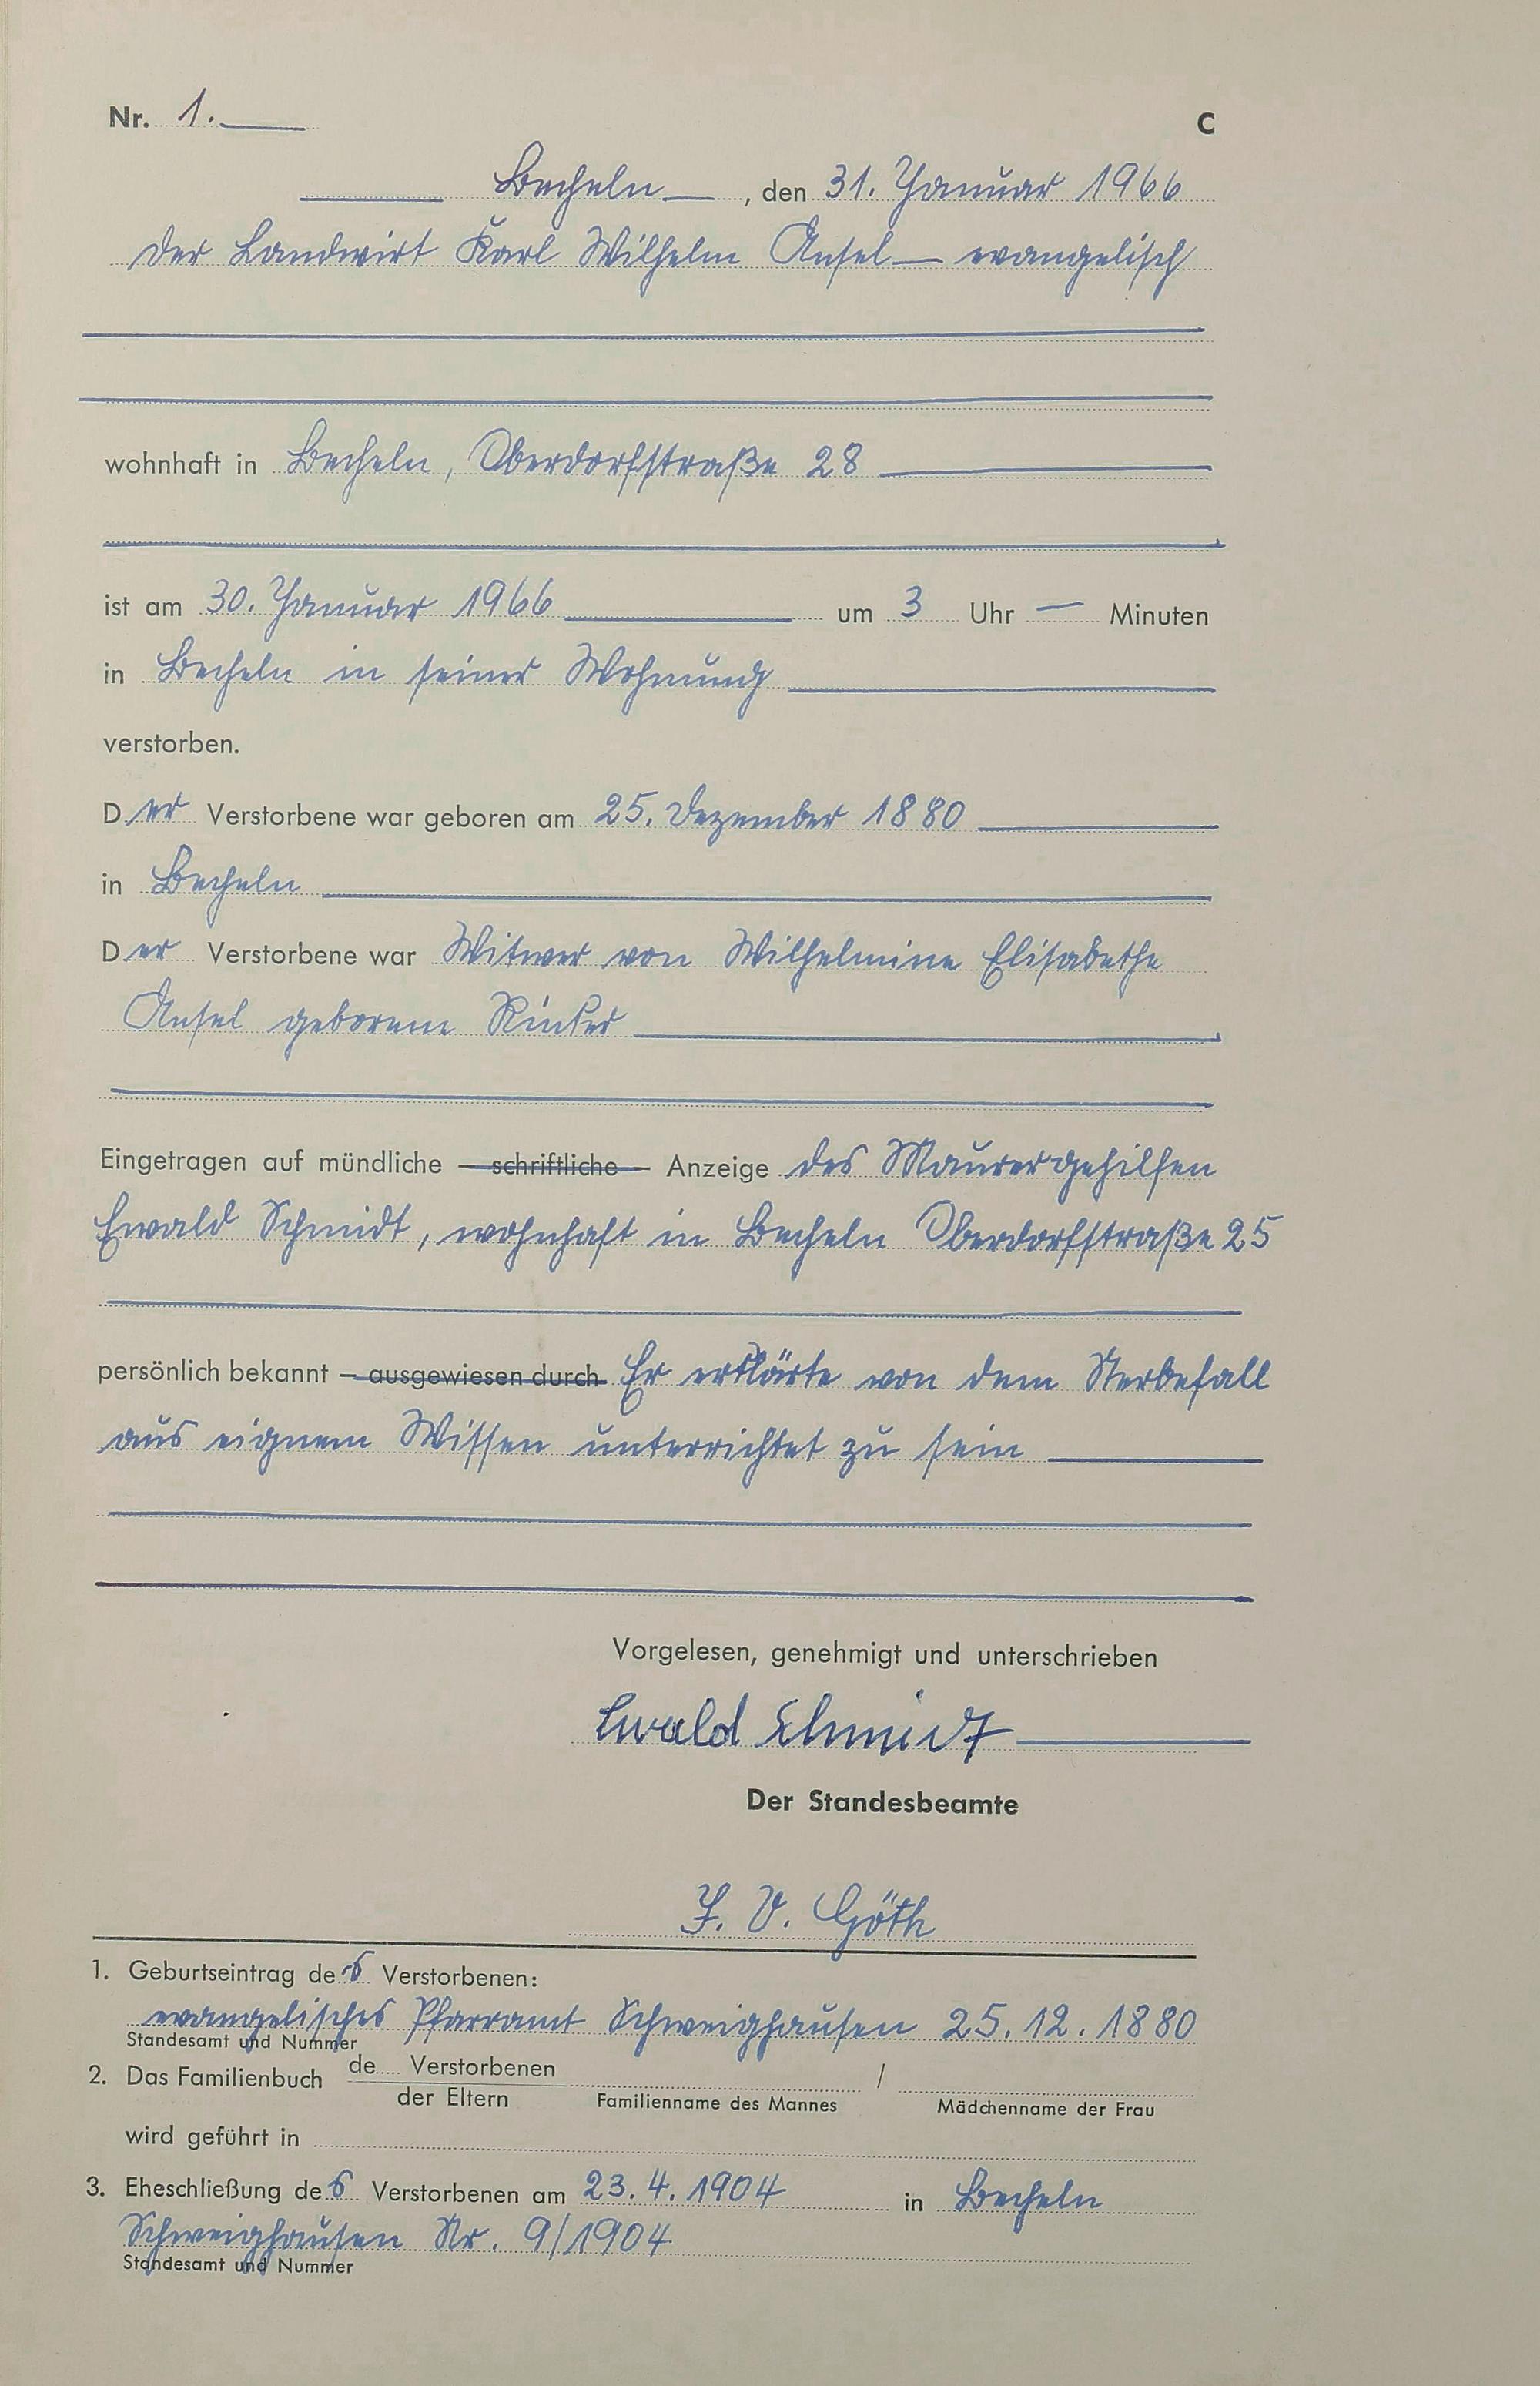 Nr. 1. C
Becheln, den 31. Januar 1966
Der Landwirt Karl Wilhelm Ansel — evangelisch
wohnhaft in Becheln, Oberdorfstraße 28
ist am 30. Januar 1966 um 3 Uhr — Minuten
in Becheln in seiner Wohnung
verstorben.
Der Verstorbene war geboren am 25. Dezember 1880
in Becheln
Der Verstorbene war Witwer von Wilhelmine Elisabethe
Ansel geborene Rinker
Eingetragen auf mündliche — schriftliche — Anzeige des Maurergehilfen
Ewald Schmidt, wohnhaft in Becheln Oberdorfstraße 25
persönlich bekannt — ausgewiesen durch Er erklärte von dem Sterbefall
aus eignem Wissen unterrichtet zu sein
Vorgelesen, genehmigt und unterschrieben
Ewald Schmidt
Der Standesbeamte
J. V. Göth
1. Geburtseintrag des Verstorbenen:
evangelisches Pfarramt Schweighausen 25.12.1880
Standesamt und Nummer
2. Das Familienbuch de Verstorbenen /
der Eltern Familienname des Mannes Mädchenname der Frau
wird geführt in
3. Eheschließung des Verstorbenen am 23.4.1904 in Becheln
Schweighausen Nr. 9/1904
Standesamt und Nummer